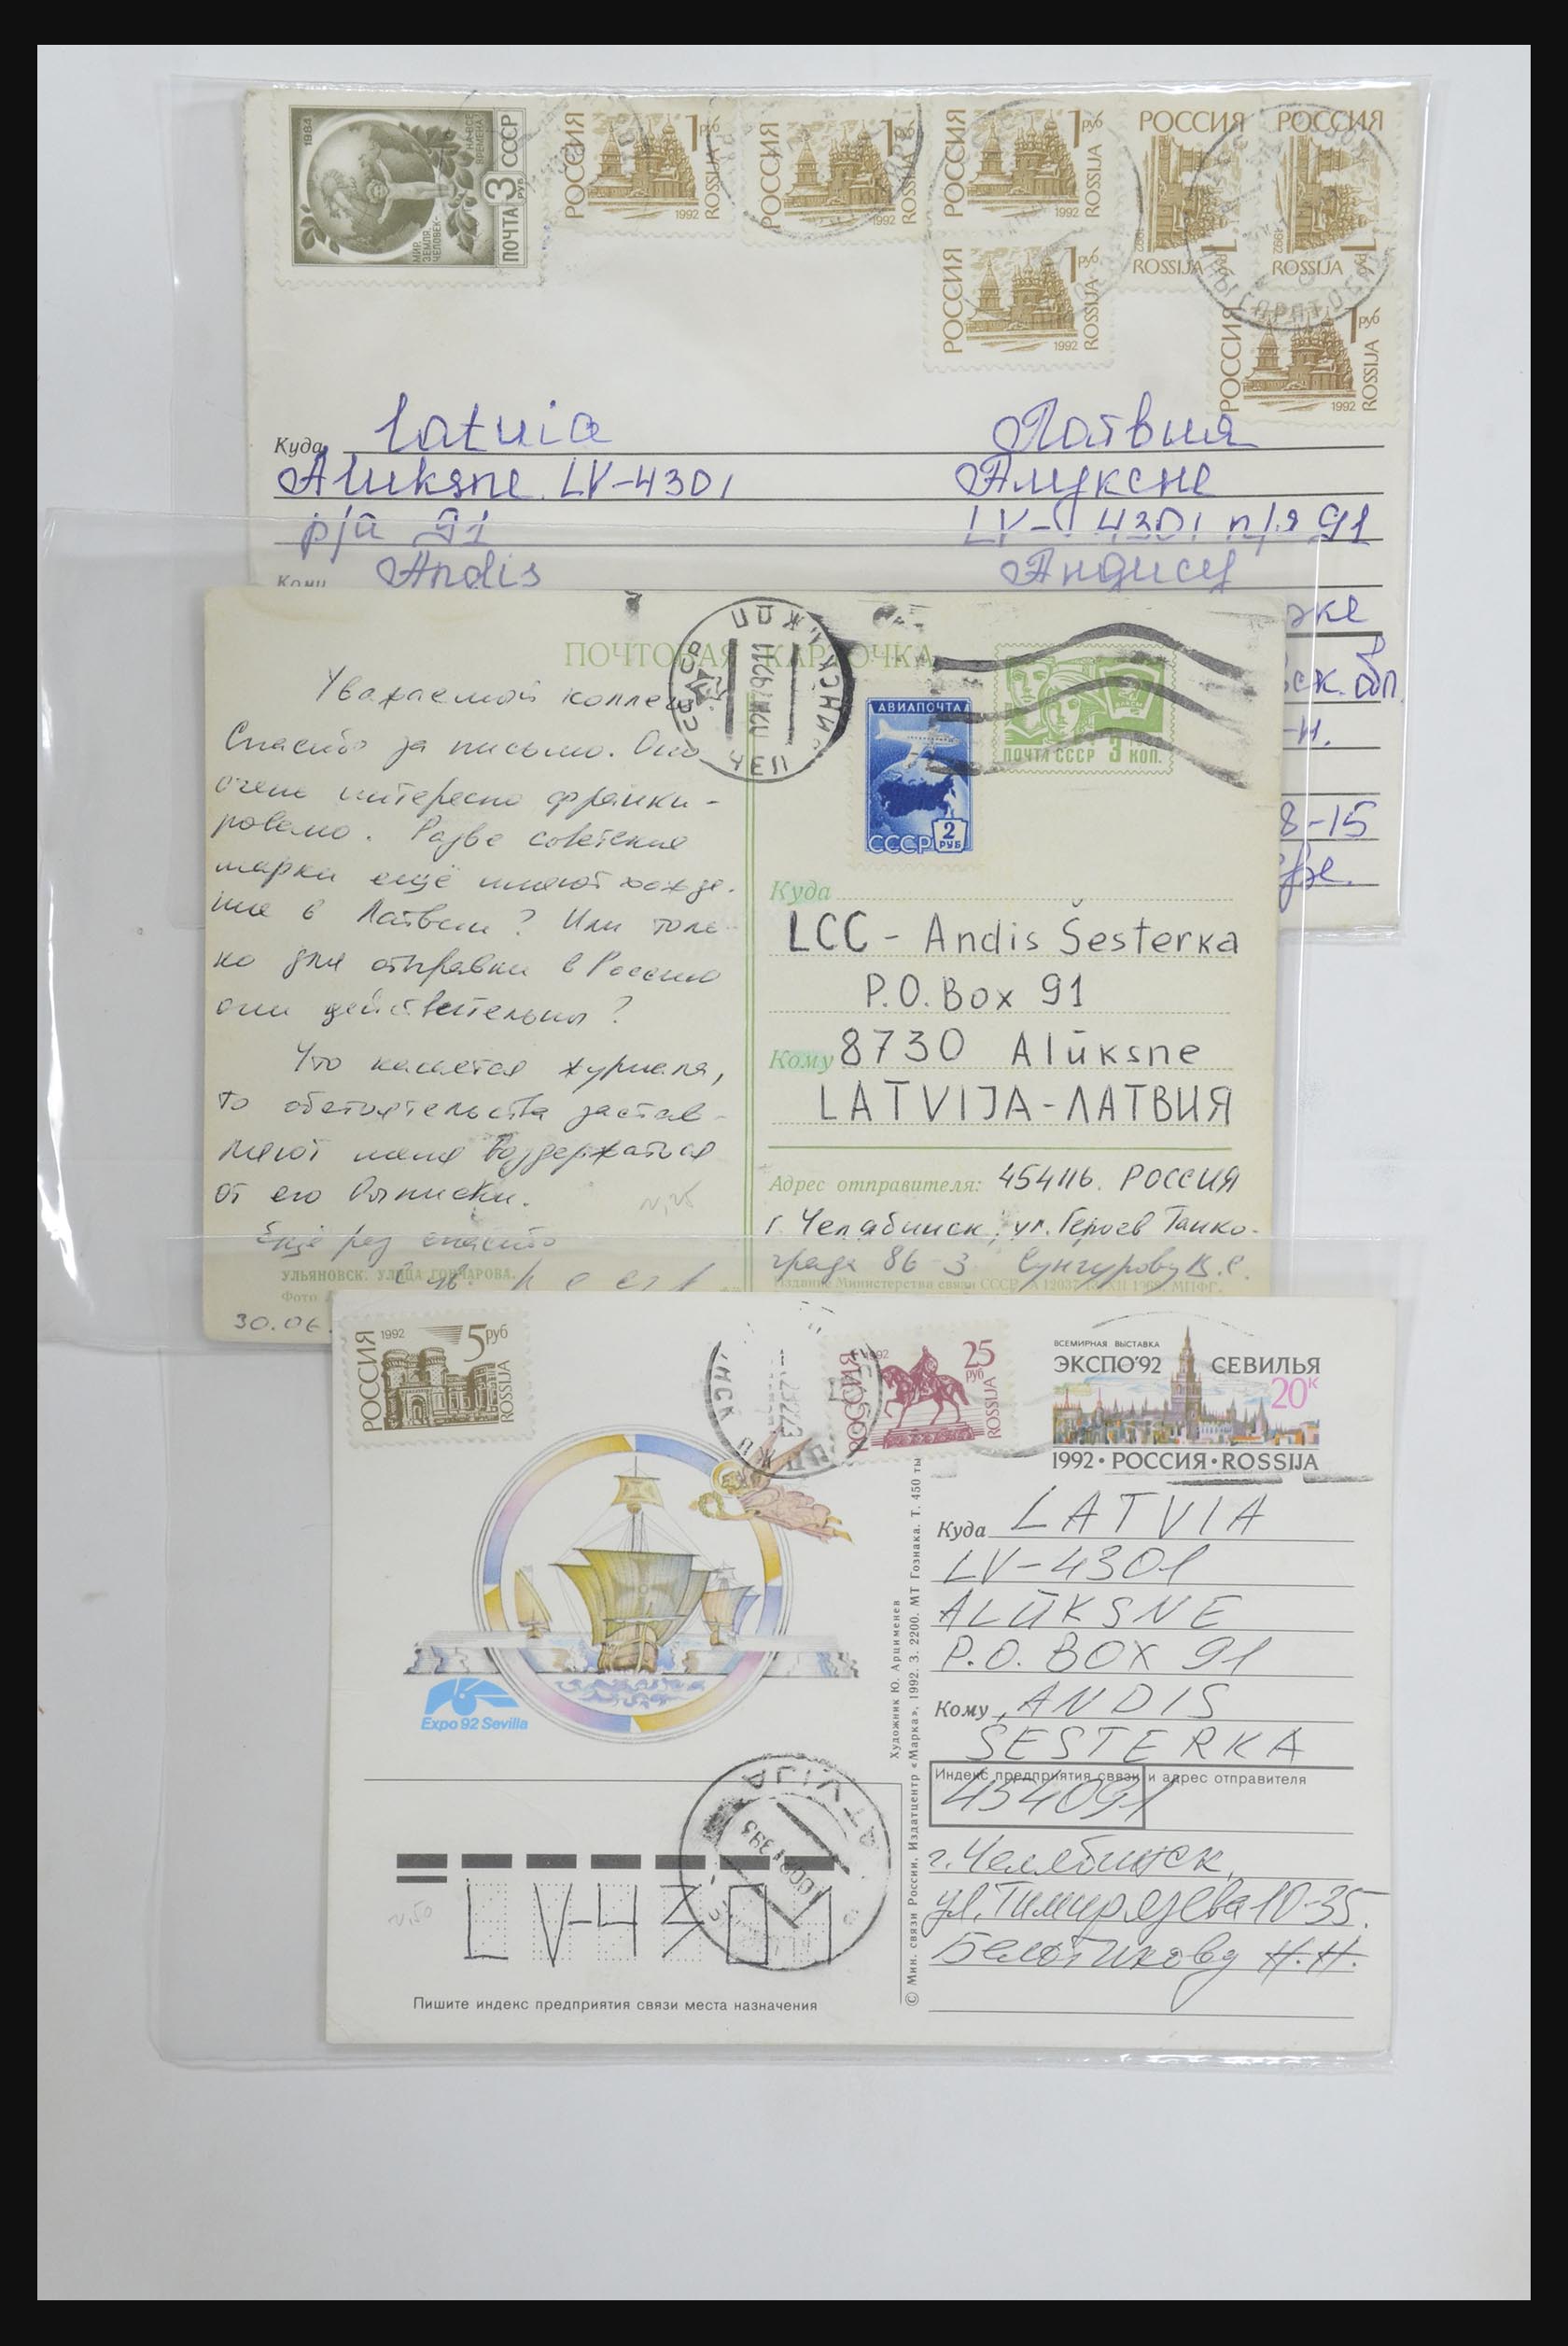 1984
НА ВСЕ ВРЕМЕНА
МИР. ЗЕМЛЯ. ЧЕЛОВЕК.
ПОЧТА 3 РУБ СССР
РОССИЯ 1 руб ROSSIJA 1992
РОССИЯ 1 руб ROSSIJA 1992
РОССИЯ 1 руб ROSSIJA 1992
РОССИЯ 1 руб ROSSIJA 1992
РОССИЯ 1 руб ROSSIJA 1992
РОССИЯ 1 руб ROSSIJA 1992
РОССИЯ 1 руб ROSSIJA 1992
Куда Latvia
Aluksne LV-4301
p/a 91
Кому Andis
Латвия
Алуксне
LV-4301 п/я 91
Андису
рке
ск. обл.
-н.
8-15
ПОЧТОВАЯ КАРТОЧКА
Уважаемый коллега
Спасибо за письмо. Оно
очень интересно франки-
ровано. Разве советские
марки ещё имеют хожде-
ние в Латвии? Или толь-
ко для отправки в Россию
они действительны?
Что касается журнала,
то обстоятельства застав-
ляют меня воздержаться
от его выписки.
Ещё раз спасибо
УЛЬЯНОВСК. УЛИЦА ГОНЧАРОВА.
Фото
30.06.
АВИАПОЧТА
СССР 2 РУБ
ПОЧТА СССР 3 КОП.
Куда
LCC - Andis Šesterka
P.O. Box 91
Кому 8730 Alūksne
LATVIJA-ЛАТВИЯ
Адрес отправителя: 454116. РОССИЯ
г. Челябинск, ул. Героев Танко-
града 86-3 Сунгурову В.С.
Издание Министерства связи СССР
РОССИЯ 1992 5 руб ROSSIJA
РОССИЯ 1992 25 руб ROSSIJA
ВСЕМИРНАЯ ВЫСТАВКА
ЭКСПО'92 СЕВИЛЬЯ
20к
1992 • РОССИЯ • ROSSIJA
Expo 92 Sevilla
Художник Ю. Арцименев
© Мин. связи России. Издатцентр «Марка». 1992. З. 2200. МТ Гознака. Т. 450 ты
Куда LATVIA
LV-4301
ALŪKSNE
P.O. BOX 91
Кому ANDIS
ŠESTERKA
Индекс предприятия связи и адрес отправителя
454091
г. Челябинск,
ул. Тимирязева 10-35.
Н.Н.
LATVIJA
LV-4301
Пишите индекс предприятия связи места назначения